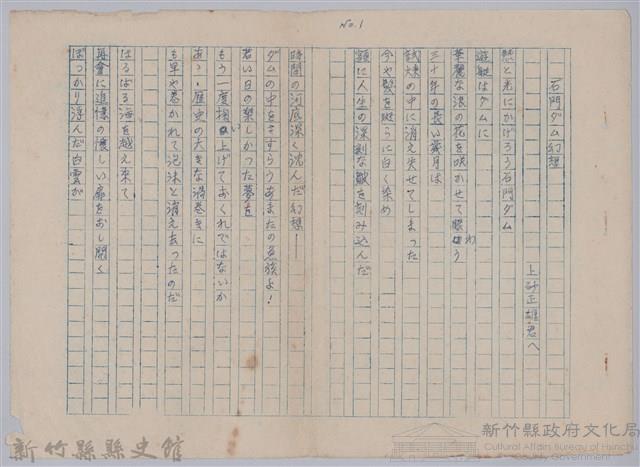 No.1
石門ダム幻想
上砂正雄君へ
光にかげろう石門ダム
遊艇はダムに
華麗な浪の花を咲かせて賑わう
三十年の長い歳月は
の中に消え失せてしまった
今や鬢を斑らに白く染め
額に人生の深刻な皺を刻み込んだ
時間の河底深く沈んだ幻想——
ダムの中をさすらうあまたの魚族よ!
若い日の楽しかった夢を
もう一度掬い上げておくれではないか
あゝ歴史の大きな渦巻きに
も早や巻かれて泡沫と消え去ったのだ
はるばる海を越え来て
再會に追憶の懐しい扉をおし開く
ぽっかり浮んだ白雲が
新竹縣縣史館
新竹縣政府文化局
Cultural Affairs Bureau of Hsinchu County Government